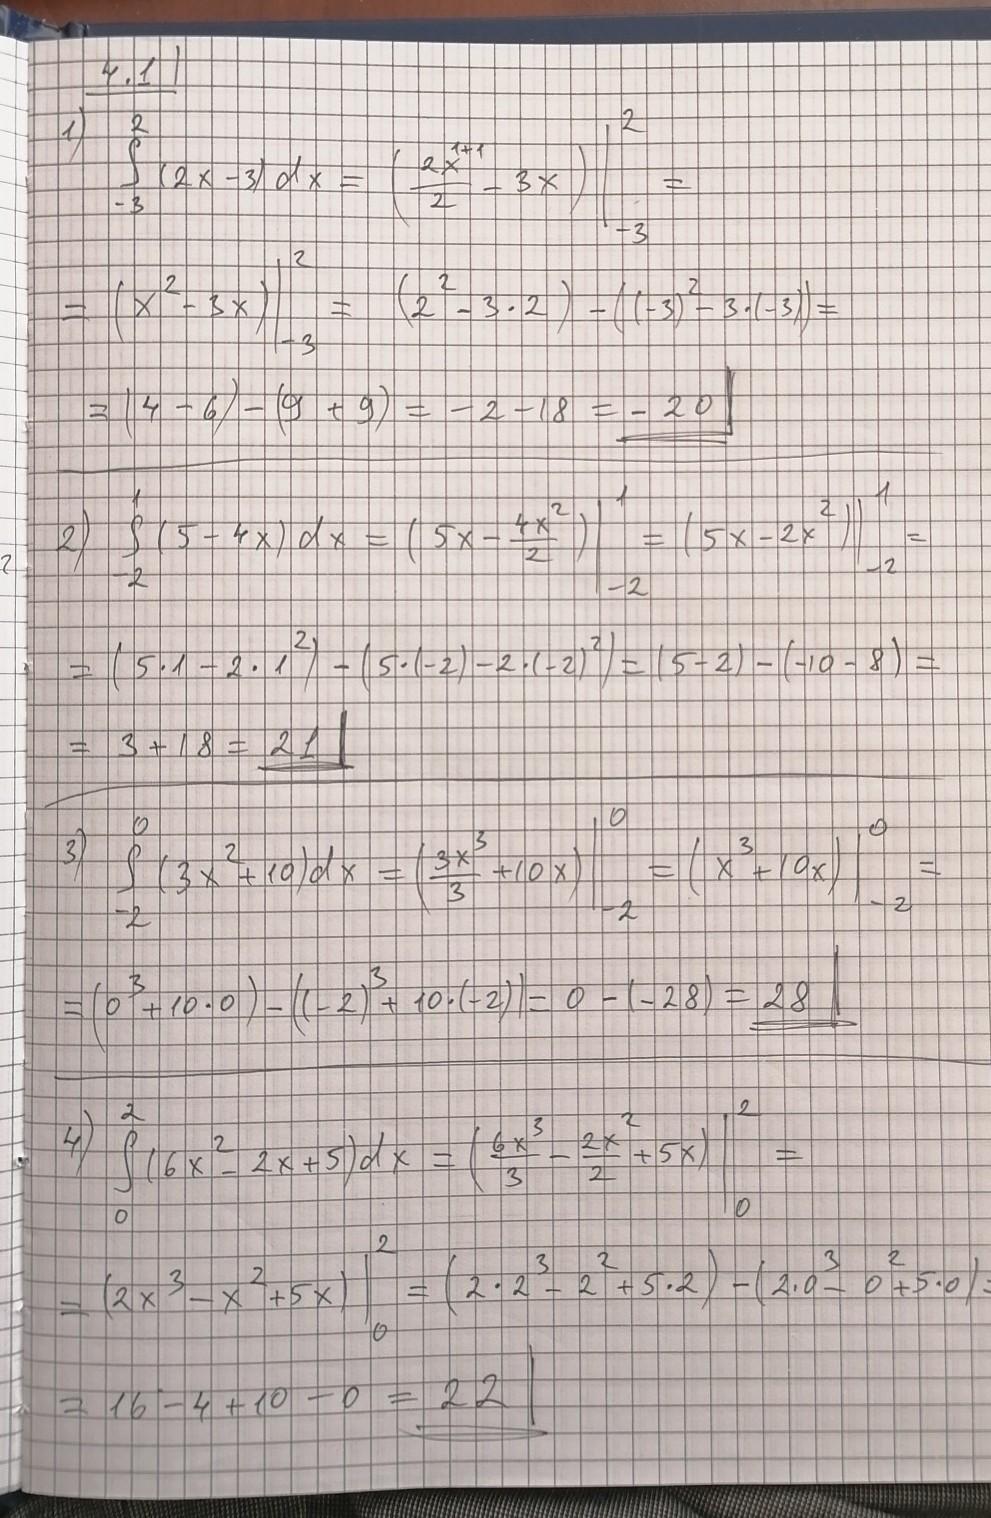 4.1
1) ∫_{-3}^{2} (2x-3)dx = (2x^{1+1}/2 - 3x)|_{-3}^{2} =
= (x^2 - 3x)|_{-3}^{2} = (2^2 - 3·2) - ((-3)^2 - 3·(-3)) =
= (4 - 6) - (9 + 9) = -2 - 18 = -20
2) ∫_{-2}^{1} (5 - 4x)dx = (5x - 4x^2/2)|_{-2}^{1} = (5x - 2x^2)|_{-2}^{1} =
= (5·1 - 2·1^2) - (5·(-2) - 2·(-2)^2) = (5-2) - (-10 - 8) =
= 3 + 18 = 21
3) ∫_{-2}^{0} (3x^2 + 10)dx = (3x^3/3 + 10x)|_{-2}^{0} = (x^3 + 10x)|_{-2}^{0} =
= (0^3 + 10·0) - ((-2)^3 + 10·(-2)) = 0 - (-28) = 28
4) ∫_{0}^{2} (6x^2 - 2x + 5)dx = (6x^3/3 - 2x^2/2 + 5x)|_{0}^{2} =
= (2x^3 - x^2 + 5x)|_{0}^{2} = (2·2^3 - 2^2 + 5·2) - (2·0^3 - 0^2 + 5·0) =
= 16 - 4 + 10 - 0 = 22